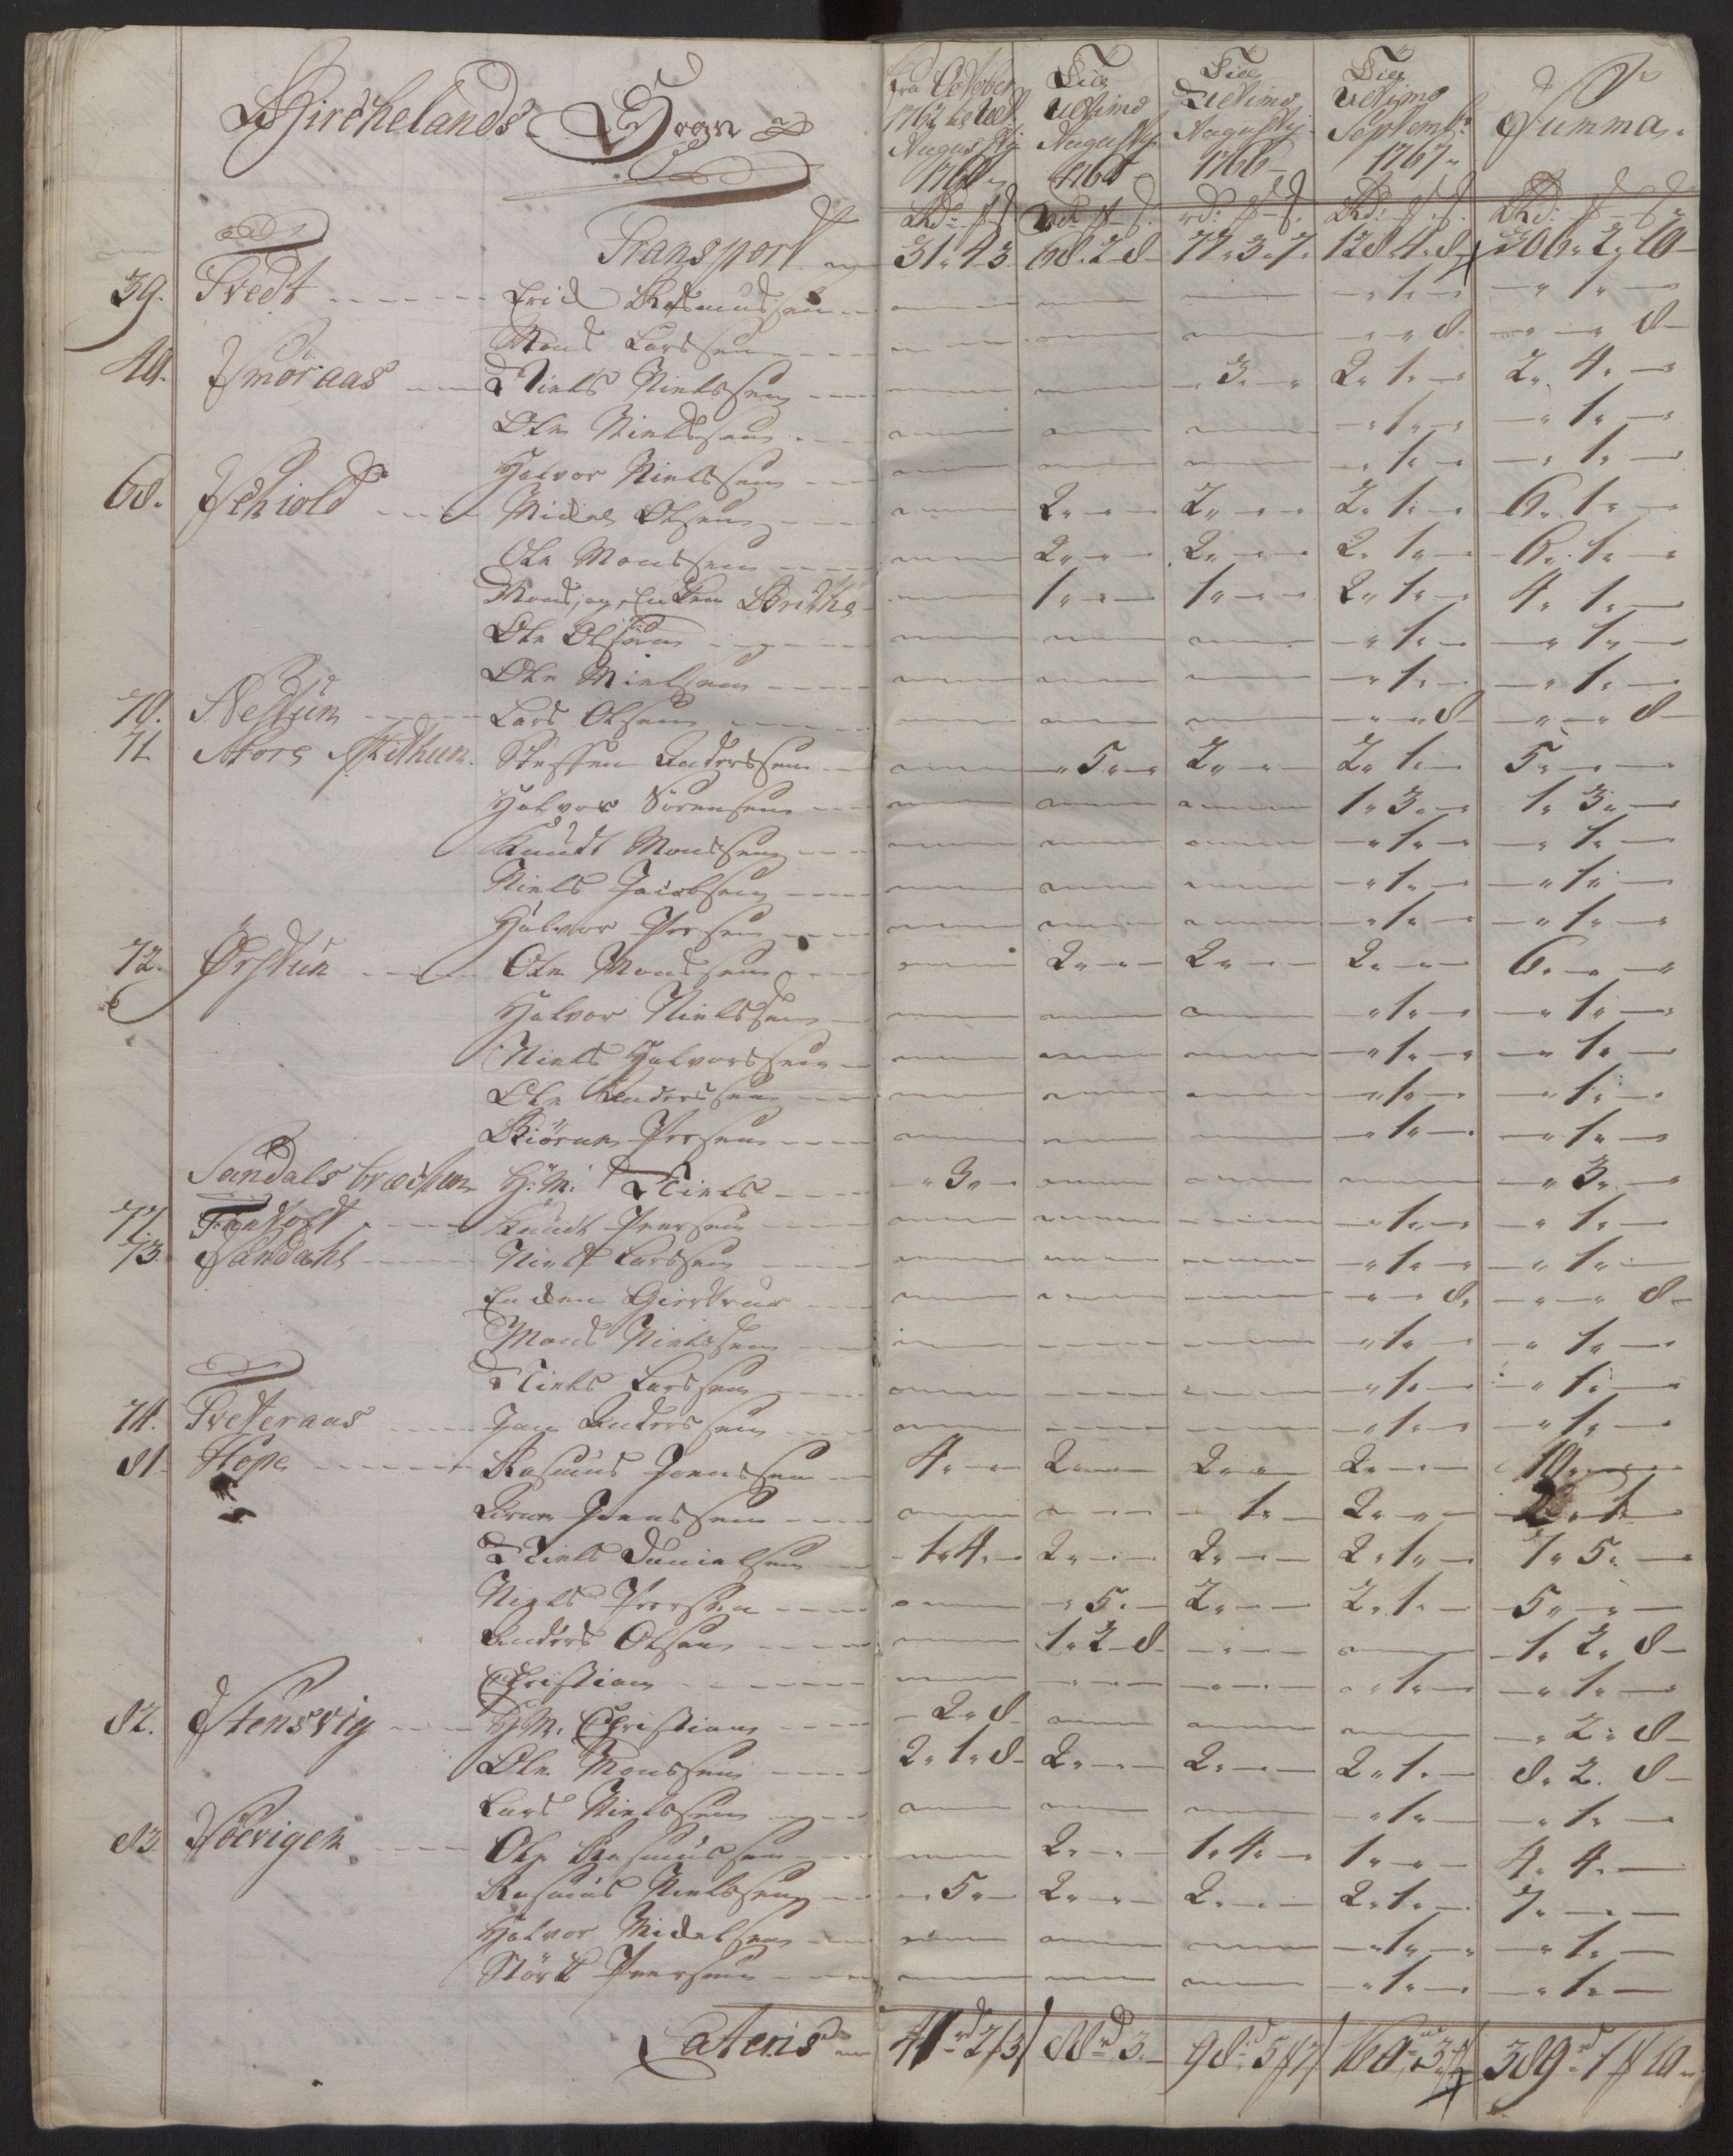 Kirchelands Sogn
Fra October 1762 til Ult. Augustij 1764 | Till Ultimo Augustij 1765 | Till Ultimo Augustij 1766 | Till Ultimo Septembr 1767 | Summa
Rd: | rd: | rd: | Rd: | Rd:
Transport 31. 4 3 | 68. 2. 8 | 77. 3. 7. | 128 4. 8 | 306. 2. 10
39. Tvedt Erich Rasmussen 1. | 1.
Mons Larssen 8 | 8
40. Smöraas Niels Nielssen 3. | 2. 1. | 2. 4.
Ole Nielssen 1. | 1.
Halvor Nielssen 1. | 1.
60. Schiold Michel Olsen 2. | 2. | 2. 1. | 6. 1.
Ole Monssen 2. | 2. | 2. 1. | 6. 1.
Mons, og Encken Brithe 1. | 1. | 2. 1. | 4. 1.
Ole Olssen 1. | 1.
Ole Nielssen 1. | 1.
70. Nestun Lars Olsen 8 | 8
71. Store Methun Steffen Anderssen 5. | 2. | 2. 1. | 5.
Halvor Sörensen 1. 3. | 1. 3.
Knudt Monssen 1. | 1.
Niels Jacobsen 1. | 1.
Halvor Persen 1. | 1.
72. Örstun Ole Monssen 2. | 2. | 2. | 6.
Halvor Nielssen 1. | 1.
Niels Halvorssen 1. | 1.
Ole Anderssen 1. | 1.
Biörn Persen 1. | 1.
Sandals H: M: Niels 3. | 3.
77. Fantoft Knudt Peersen 1. | 1.
73. Sandahl Niels Larssen 1. | 1.
Encken Giertrue 8. | 8
Mons Nielssen 1. | 1.
Niels Larssen 1. | 1.
74. Tveteraas Jan Anderssen 1. | 1.
81. Hope Rasmus Joenssen 4. | 2. | 2. | 2. | 10.
Joenssen 1. | 2. | 2. 1.
Niels Danielsen 1. 4. | 2. | 2. | 2. 1. | 7. 5.
Niels Persen 5. | 2. | 2. 1. | 5.
Anders Olsen 1. 2. 8 | 1. 2. 8
Christian 1. | 1.
82. Stensvig H: M: Christian 2. 8 | 2. 8
Ole Monssen 2. 1. 8 | 2. | 2. | 2. 1. | 8. 2. 8
Lars Nielssen 1. | 1.
83. Söevigen Ole Rasmussen 2. | 1. 4. | 1. | 4. 4.
Rasmus Nielssen 5. | 2. | 2. | 2. 1. | 7.
Halvor Michelsen 1. | 1.
Störk Peersen 1. | 1.
Lateris 41 rd 2 3 | 88 rd 3. | 98 rd 5 7 | 160 rd 3 | 389 rd 1 10